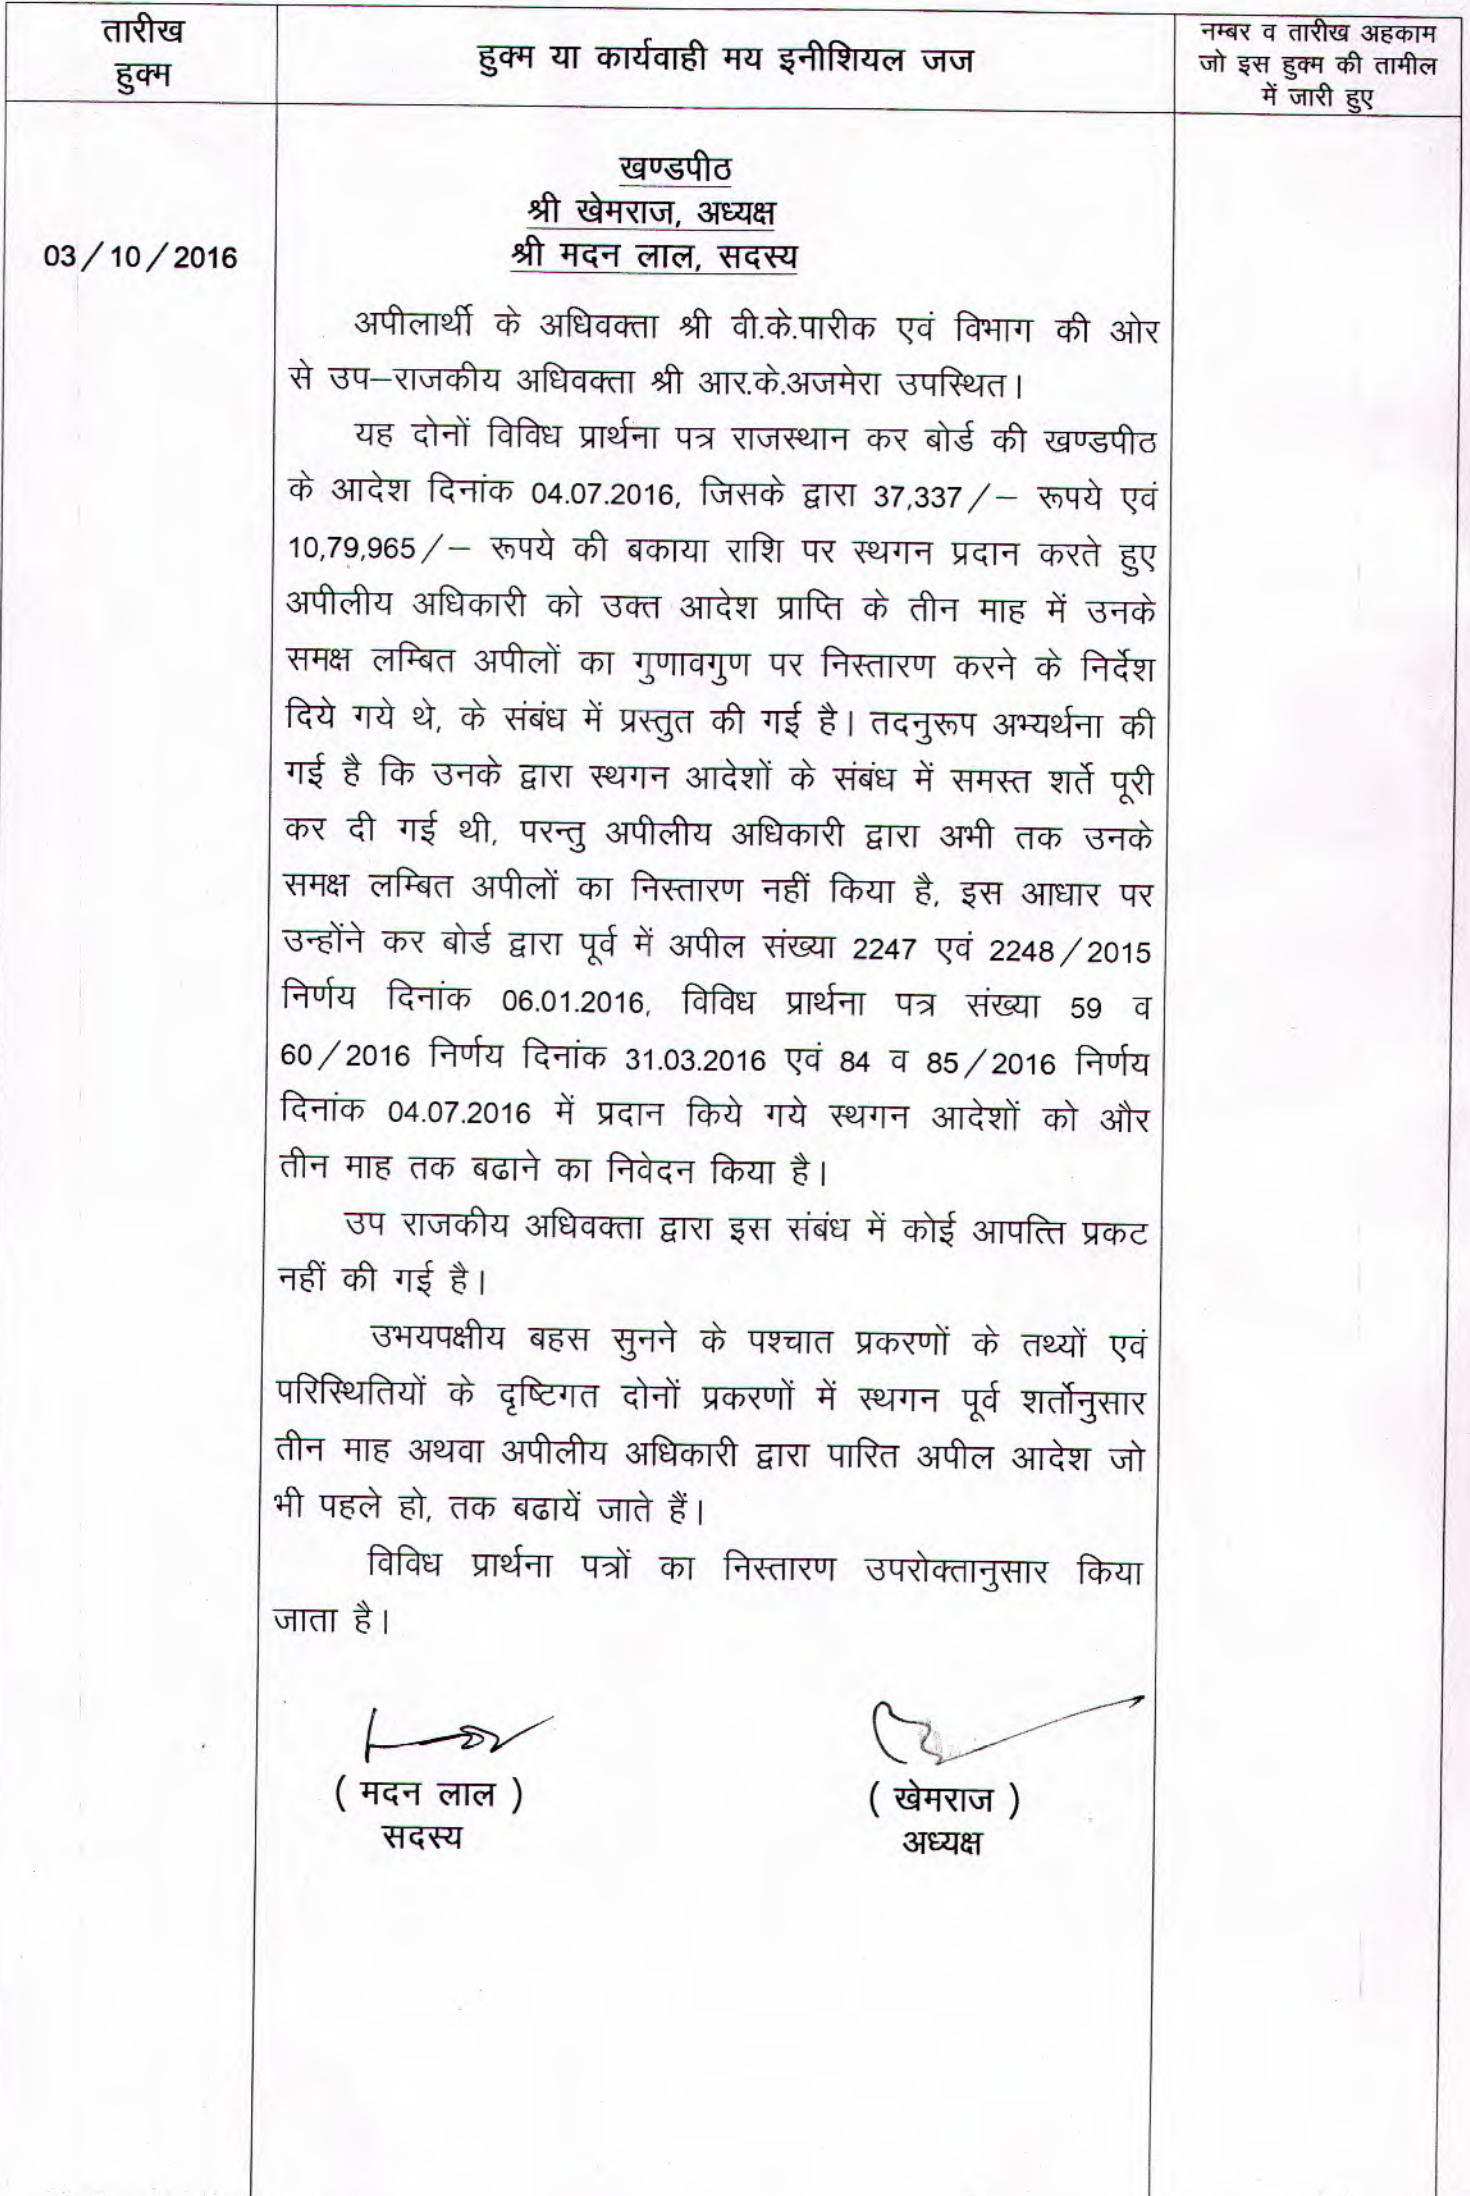 तारीख
हुक्म
हुक्म या कार्यवाही मय इनीशियल जज
नम्बर व तारीख अहकाम
जो इस हुक्म की तामील
में जारी हुए
खण्डपीठ
श्री खेमराज, अध्यक्ष
03/10/2016
श्री मदन लाल, सदस्य
अपीलार्थी के अधिवक्ता श्री वी.के.पारीक एवं विभाग की ओर
से उप–राजकीय अधिवक्ता श्री आर.के.अजमेरा उपस्थित।
यह दोनों विविध प्रार्थना पत्र राजस्थान कर बोर्ड की खण्डपीठ
के आदेश दिनांक 04.07.2016, जिसके द्वारा 37,337/– रूपये एवं
10,79,965/– रूपये की बकाया राशि पर स्थगन प्रदान करते हुए
अपीलीय अधिकारी को उक्त आदेश प्राप्ति के तीन माह में उनके
समक्ष लम्बित अपीलों का गुणावगुण पर निस्तारण करने के निर्देश
दिये गये थे, के संबंध में प्रस्तुत की गई है। तदनुरूप अभ्यर्थना की
गई है कि उनके द्वारा स्थगन आदेशों के संबंध में समस्त शर्ते पूरी
कर दी गई थी, परन्तु अपीलीय अधिकारी द्वारा अभी तक उनके
समक्ष लम्बित अपीलों का निस्तारण नहीं किया है, इस आधार पर
उन्होंने कर बोर्ड द्वारा पूर्व में अपील संख्या 2247 एवं 2248/2015
निर्णय दिनांक 06.01.2016, विविध प्रार्थना पत्र संख्या 59 व
60/2016 निर्णय दिनांक 31.03.2016 एवं 84 व 85/2016 निर्णय
दिनांक 04.07.2016 में प्रदान किये गये स्थगन आदेशों को और
तीन माह तक बढाने का निवेदन किया है।
उप राजकीय अधिवक्ता द्वारा इस संबंध में कोई आपत्ति प्रकट
नहीं की गई है।
उभयपक्षीय बहस सुनने के पश्चात प्रकरणों के तथ्यों एवं
परिस्थितियों के दृष्टिगत दोनों प्रकरणों में स्थगन पूर्व शर्तोनुसार
तीन माह अथवा अपीलीय अधिकारी द्वारा पारित अपील आदेश जो
भी पहले हो, तक बढायें जाते हैं।
विविध प्रार्थना पत्रों का निस्तारण उपरोक्तानुसार किया
जाता है।
( मदन लाल )
सदस्य
( खेमराज )
अध्यक्ष